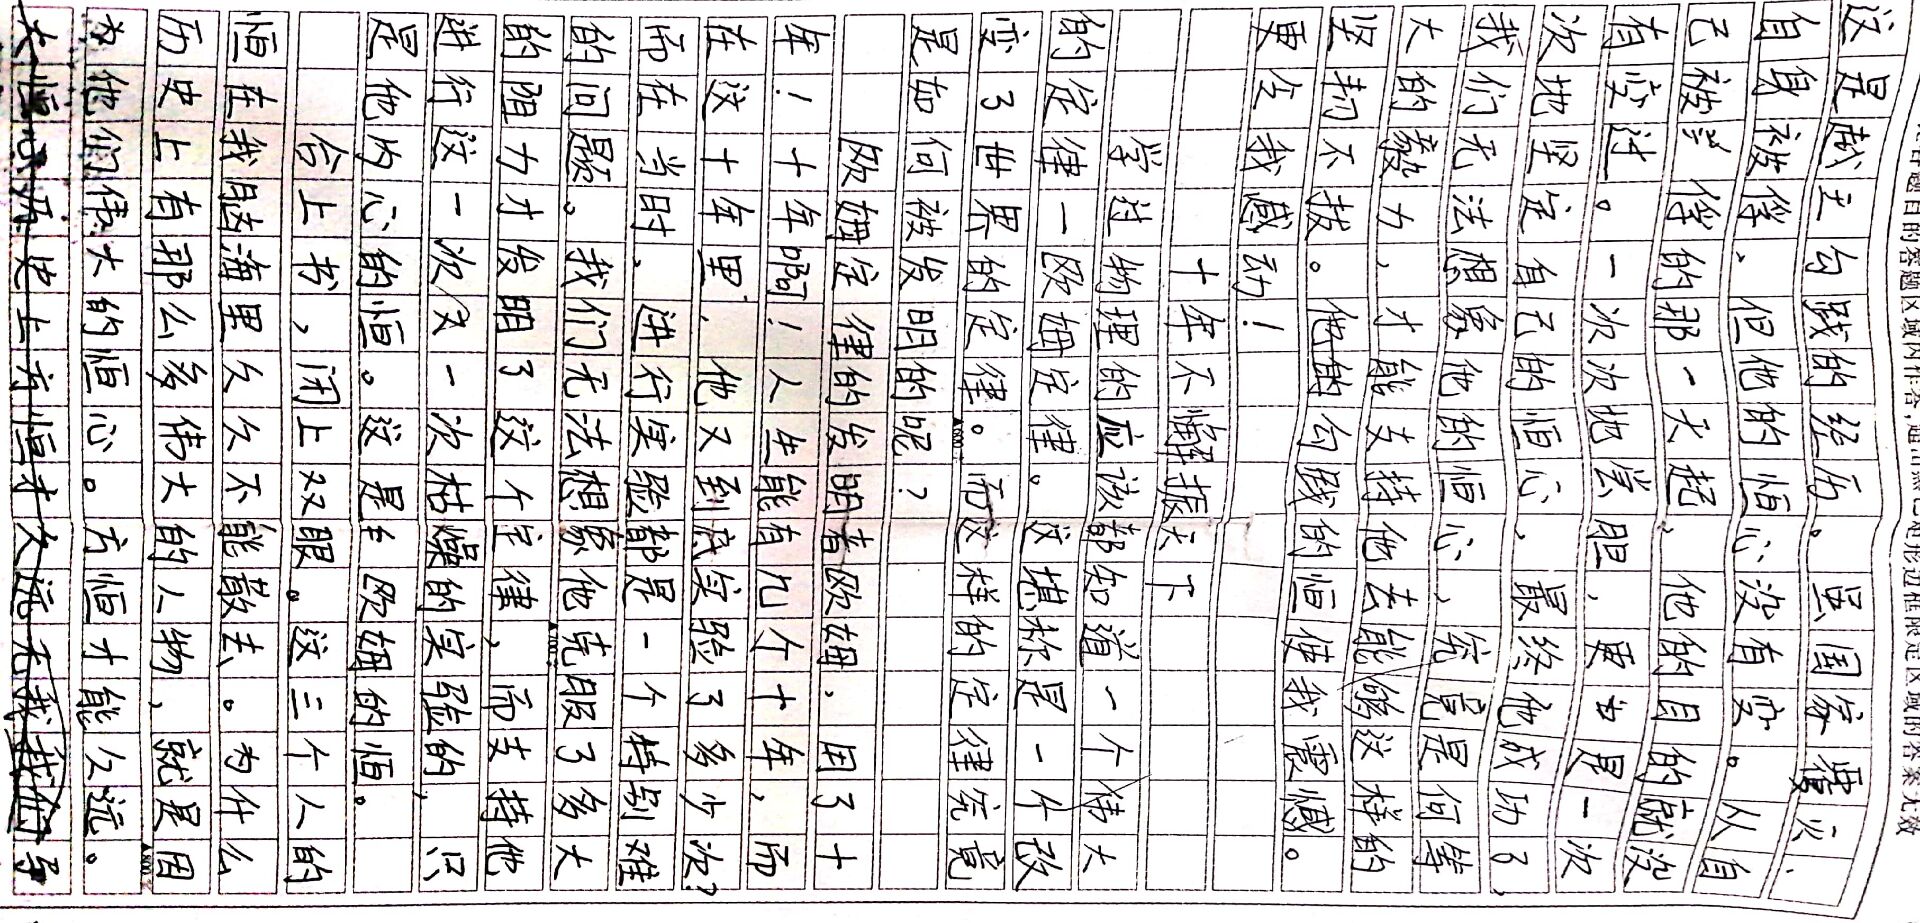 各题目的答题区域内作答,超出黑色矩形边框限定区域的答案无效
这是越王勾践的经历。吴国家覆灭、
自身被俘、但他的恒心没有变。从自
己被当俘的那一天起,他的目的就没
有变过。一次次地尝胆,更由是一次
次地坚定自己的恒心,最终他成功了,
我们无法想象他的恒心,究竟是何等
大的毅力,才能支持他去能够这样的
坚韧不拔。他的勾践的恒使我震憾。
更令我感动!
十年不懈振天下
学过物理的应该都知道一个伟大
的定律一欧姆定律。这堪称是一个改
变了世界的定律。而这样的定律究竟
▲600
是如何被发明的呢?
欧姆定律的发明者欧姆,用了十
年!十年啊!人生能有几个十年,而
在这十年里,他又到底实验了多少次?
而在当时,进行实验都是一个特别难
的问题。我们无法想象他克服了多大
▲700
的阻力才发明了这个定律,而支持他
进行这一次又一次枯燥的实验的,只
是他内心的恒。这是欧姆的恒。
合上书,闭上双眼。这三个人的
恒在我脑海里久久不能散去。为什么
历史上有那么多伟大的人物,就是因
▲800
为他们伟大的恒心。方恒才能久远。